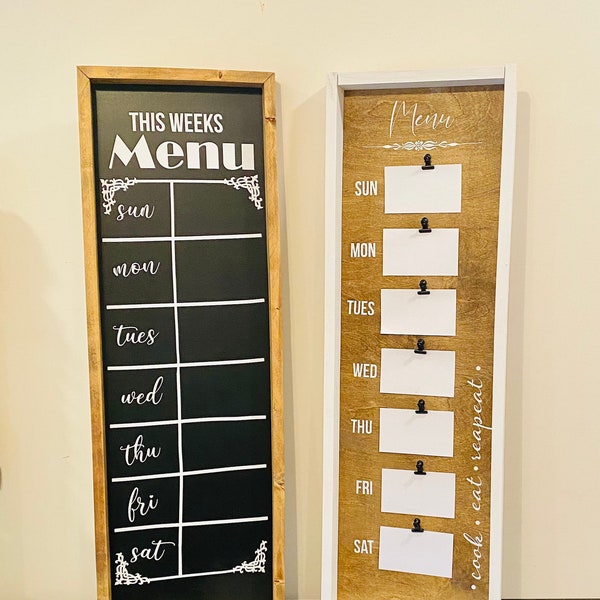 THIS WEEKS
Menu
sun
mon
tues
wed
thu
fri
sat
Menu
SUN
MON
TUES
WED
THU
FRI
SAT
• cook • eat • reapeat •